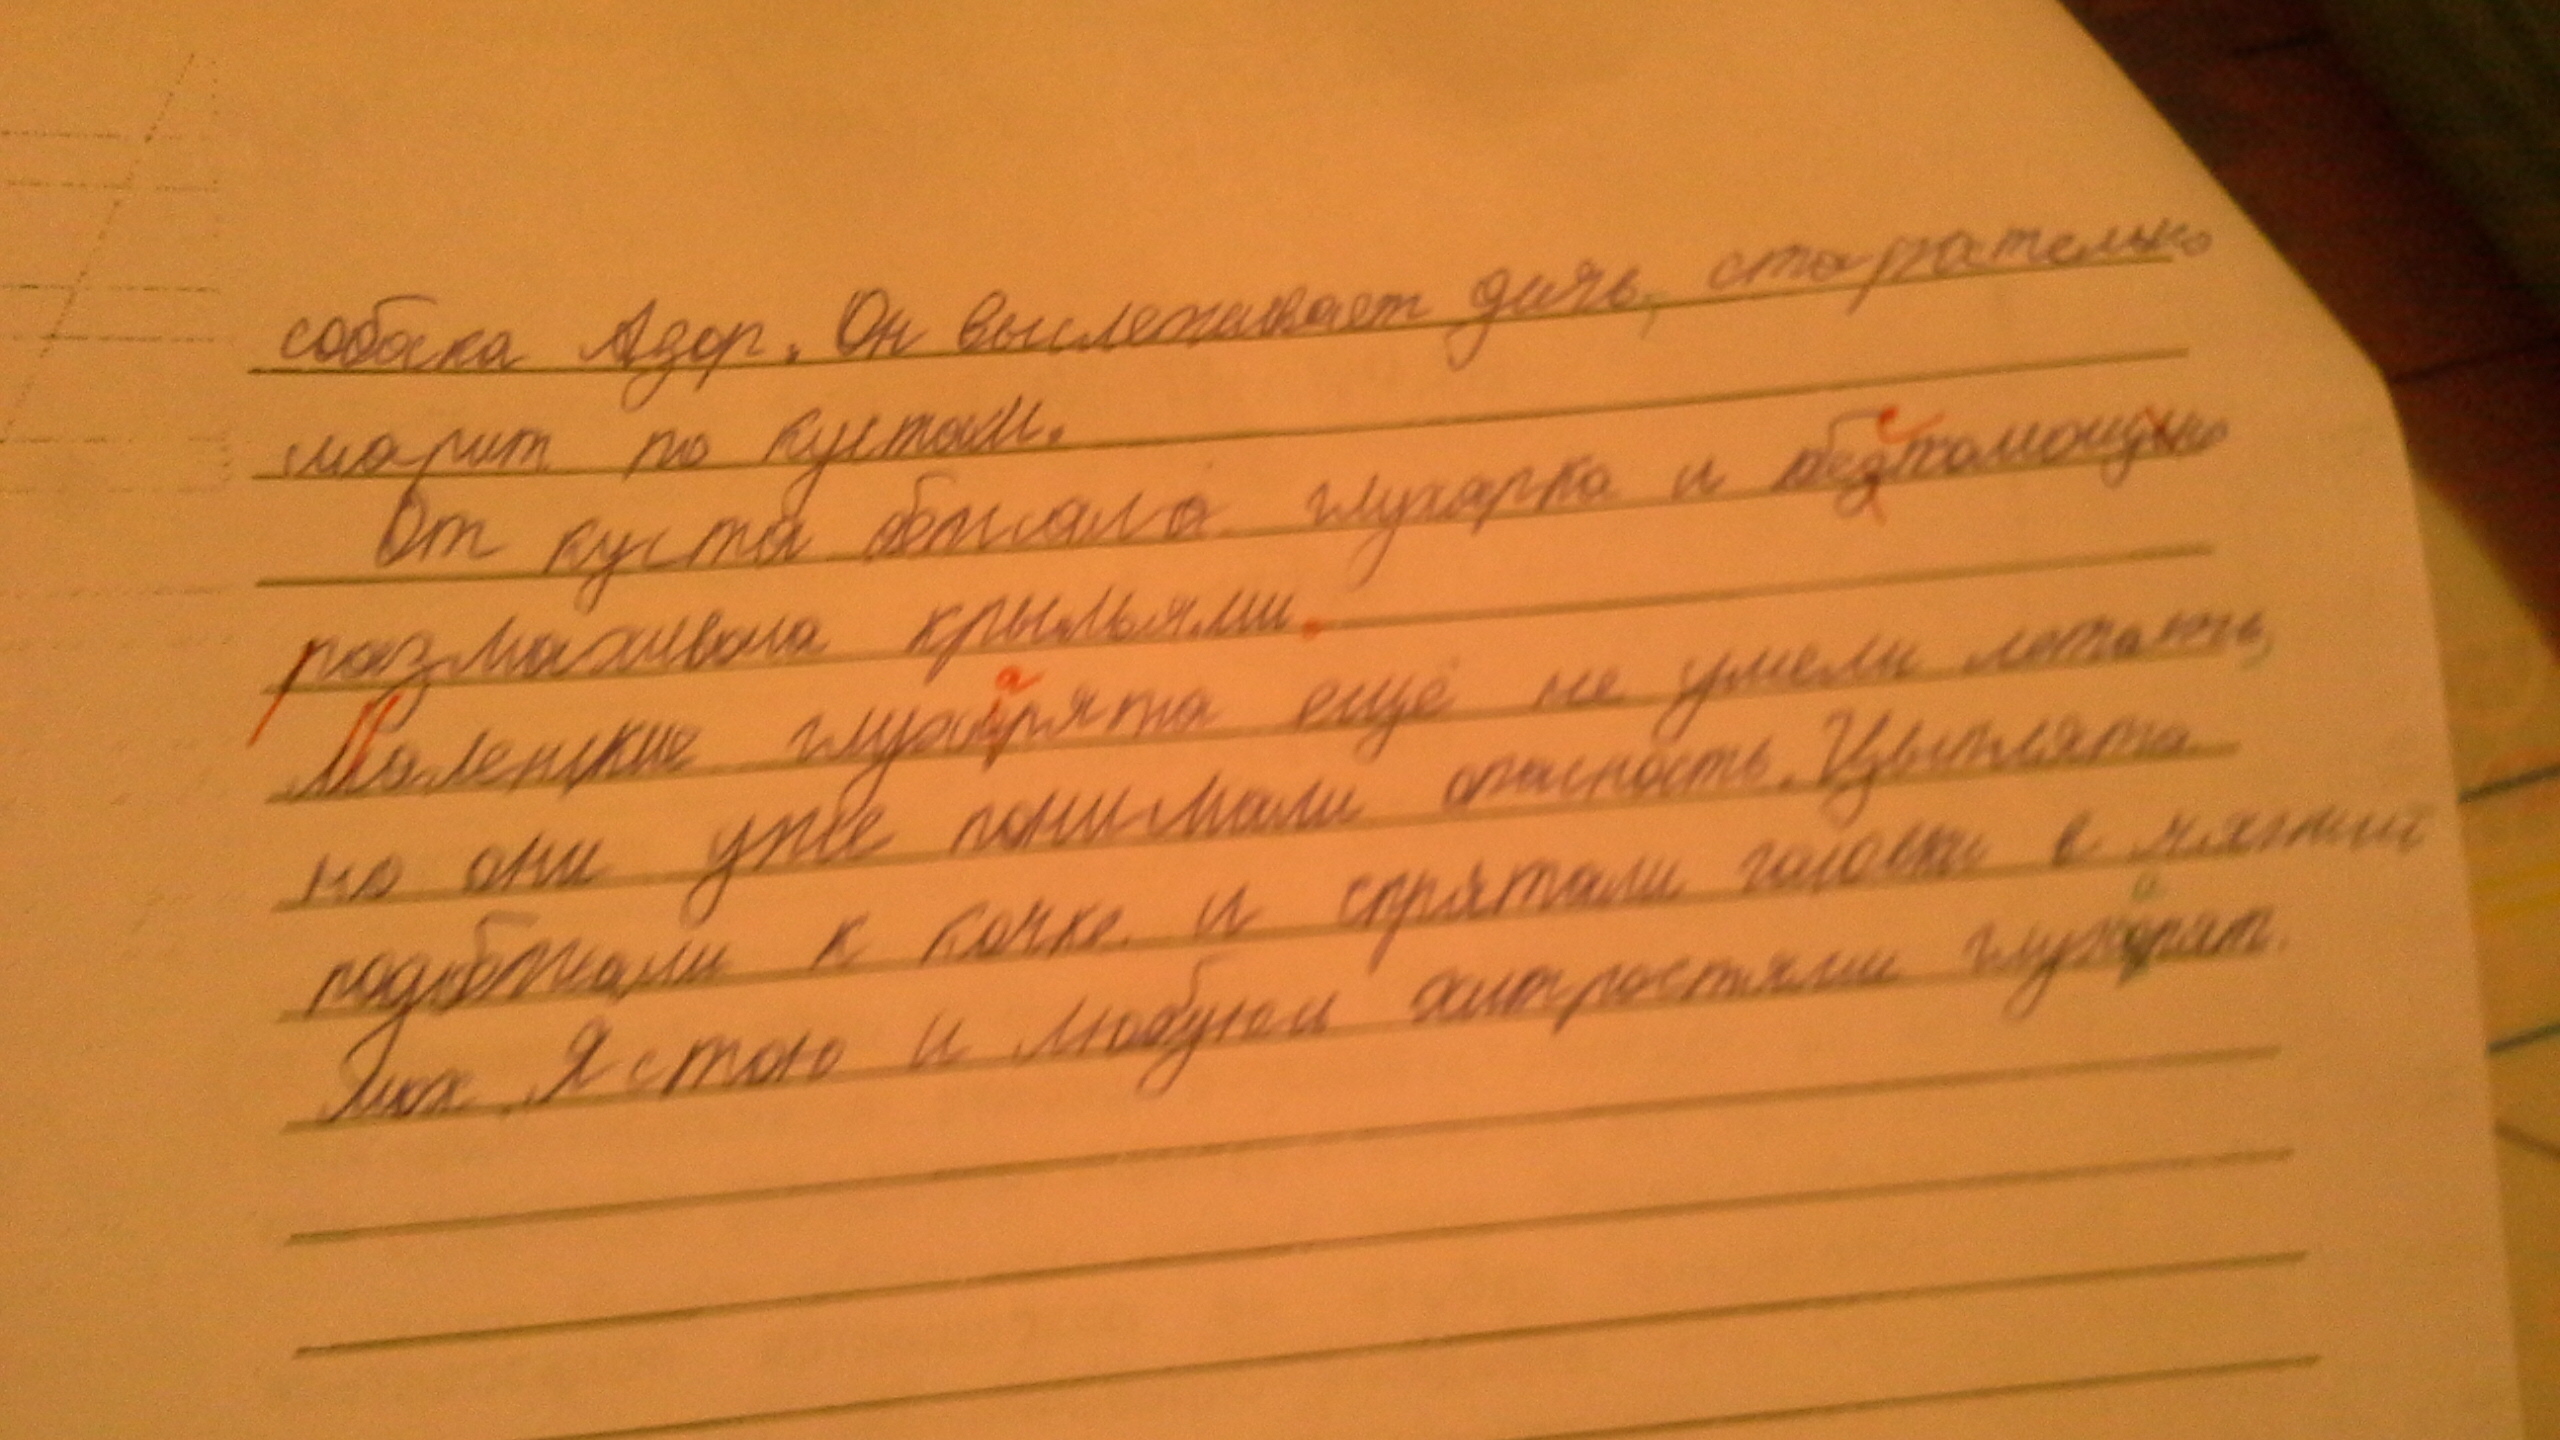 собака Адор. Он выслеживает дичь, старательно
шарит по кустам.
От куста бежала глухарка и
размахивала крыльями.
Маленькие глухарята ещё не умели летать,
но они уже понимали опасность. Цыплята
подбежали к кочке и спрятали головки в мягкий
мох. Я стою и любуюсь хитростями глухарят.